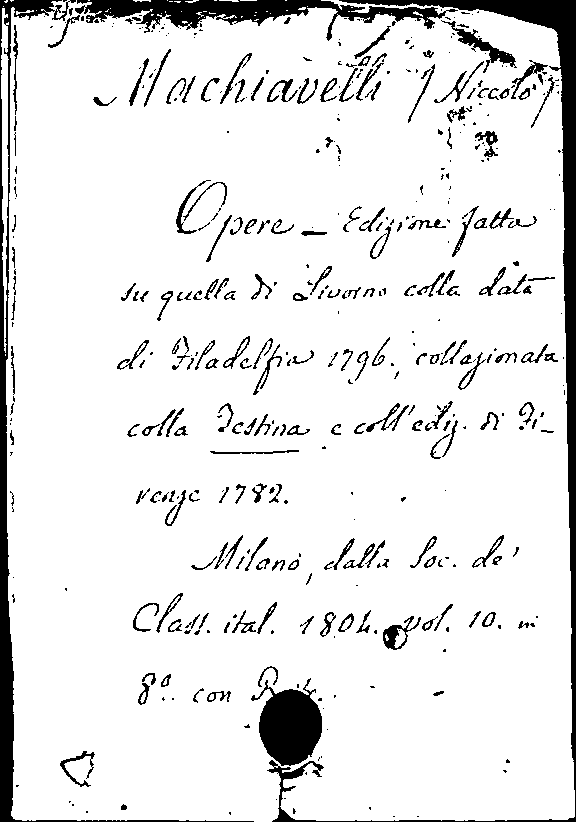 Machiavelli (Niccolò)
Opere – Edizione fatta
su quella di Livorno colla data
di Filadelfia 1796., collazionata
colla Testina e coll'ediz. di Fi-
renze 1782.
Milano, dalla Soc. de'
Class. ital. 1804. vol. 10. in
8º. con